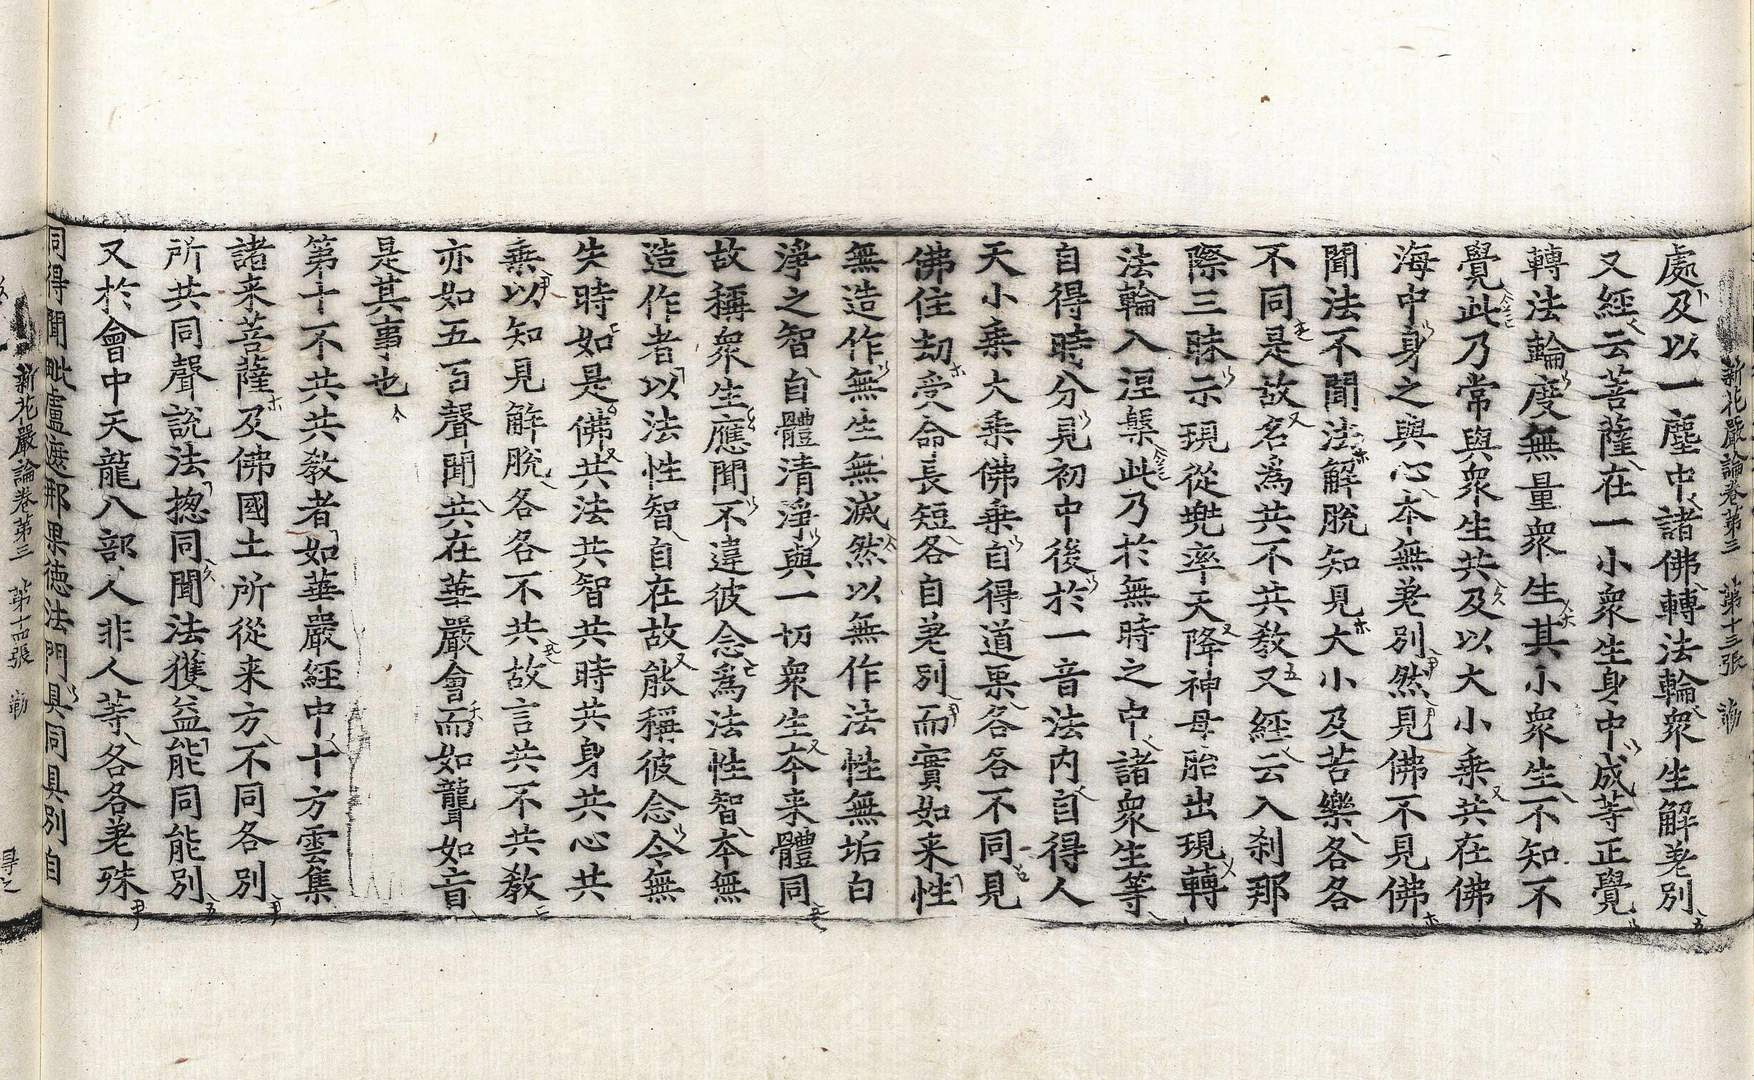 新花嚴論卷第三　第十三張　勤
處及以一塵中諸佛轉法輪衆生解差別
又經云菩薩在一小衆生身中成等正覺
轉法輪度無量衆生其小衆生不知不
覺此乃常與衆生共及以大小乘共在佛
海中身之與心本無差別然見佛不見佛
聞法不聞法解脫知見大小及苦樂各各
不同是故名爲共不共教又經云入刹那
際三昧示現從兠率天降神母胎出現轉
法輪入涅槃此乃於無時之中諸衆生等
自得時分見初中後於一音法内自得人
天小乘大乘佛乘自得道果各各不同見
佛住劫受命長短各自差別而實如来性
無造作無生無滅然以無作法性無垢白
淨之智自體清淨與一切衆生本来體同
故稱衆生應聞不違彼念爲法性智本無
造作者以法性智自在故能稱彼念令無
失時如是佛共法共智共時共身共心共
乘以知見解脫各各不共故言共不共教
亦如五百聲聞共在華嚴會而如聾如盲
是其事也
第十不共共教者如華嚴經中十方雲集
諸来菩薩及佛國土所從来方不同各別
所共同聲說法揔同聞法獲益能同能別
又於會中天龍八部人非人等各各差殊
同得聞毗盧遮那果德法門具同具別自
新花嚴論卷第三　第十四張　勤